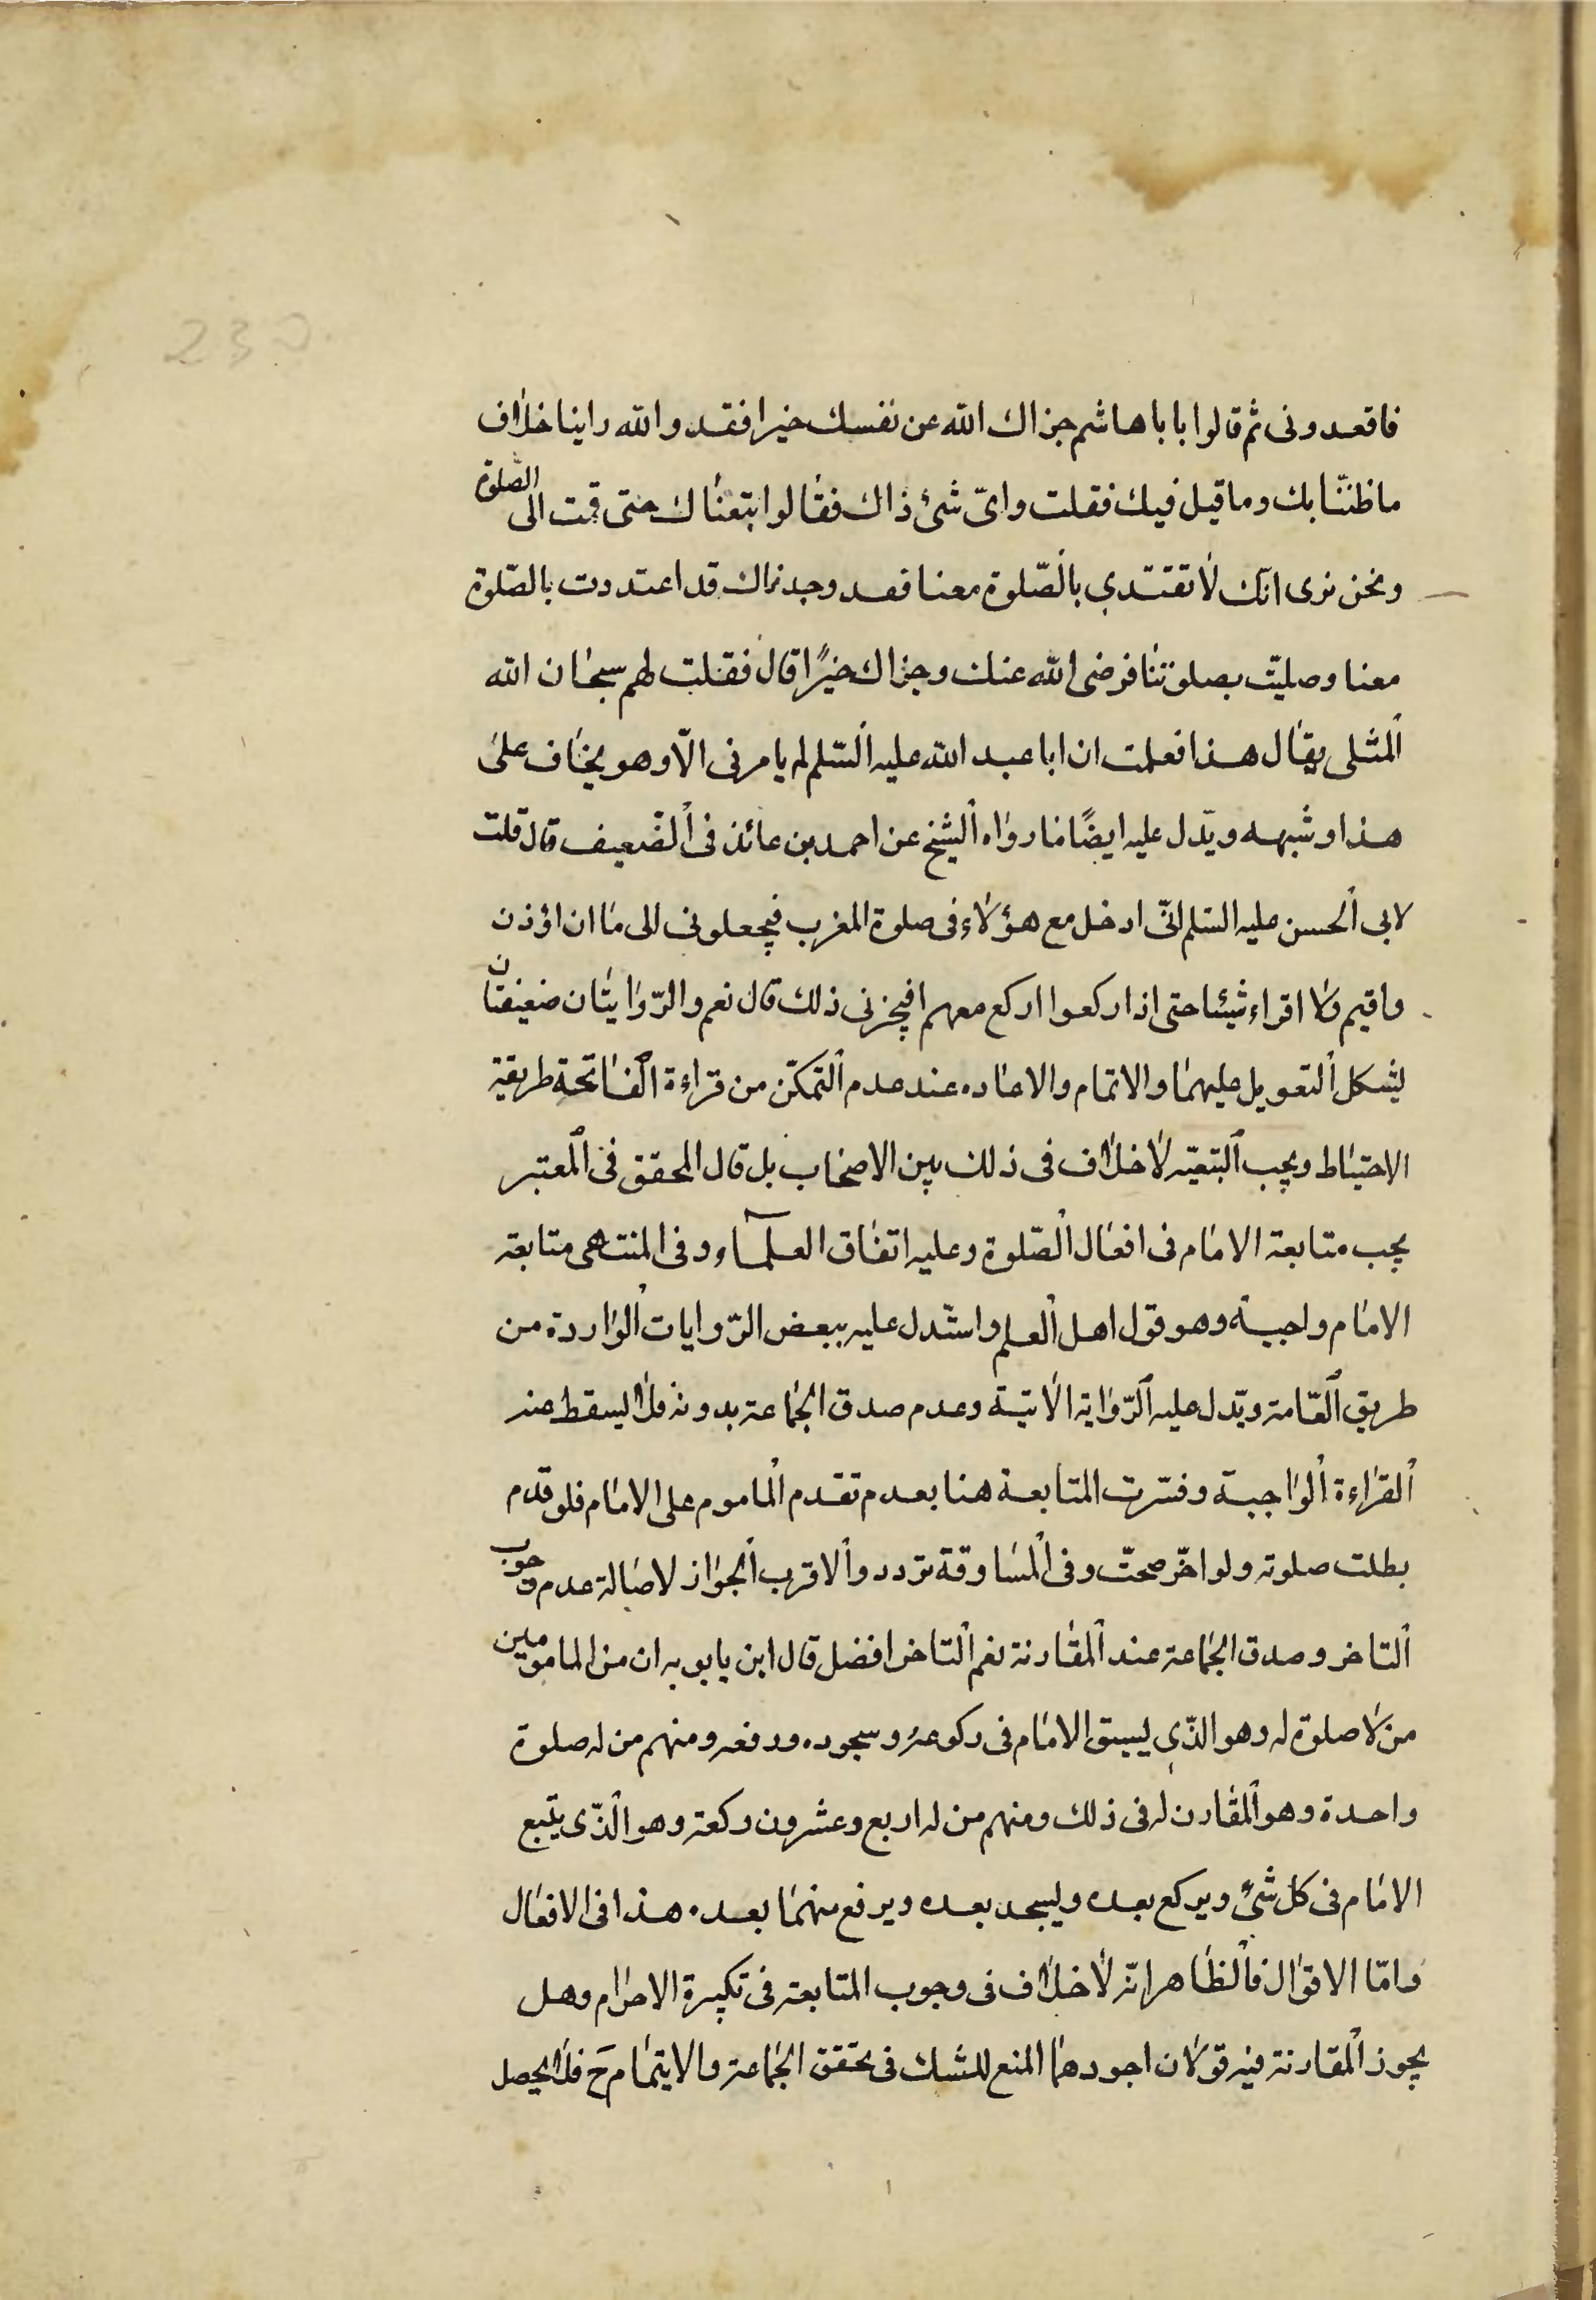 230
فاقعدونى ثم قالوا يا با هاشم جزاك الله عن نفسك خيرا فقد والله راينا خلاف
ما ظننّا بك وما قيل فيك فقلت واىّ شئ ذاك فقالوا تبعناك حتى قمت الى الصّلوة
ونحن نرى انك لا تقتدي بالصّلوة معنا فقد وجدناك قد اعتددت بالصّلوة
معنا وصليّت بصلوتنا فرضى الله عنك وجزاك خيرًا قال فقلت لهم سبحان الله
المثلى يقال هذا فعلمت ان ابا عبد الله عليه السّلم لم يامرنى الّا وهو يخاف علىّ
هذا وشبهه ويدّل عليه ايضًا ما رواه الشيخ عن احمد بن عائذ فى الضّعيف قال قلت
لابى الحسن عليه السّلم انّى ادخل مع هؤلاء فى صلوة المغرب فيجعلونى الى ما ان اؤذن
واقيم ولا اقراء شيئا حتى اذا ركعوا اركع معهم افيجزنى ذلك قال نعم والرّوايتان ضعيفتان
يشكل التعويل عليهما والاتمام والاعاده عند عدم التمكّن من قراءة الفاتحة طريقة
الاحتياط ويجب التبعيّة لا خلاف فى ذلك بين الاصحاب بل قال المحقق فى المعتبر
يجب متابعة الامام فى افعال الصّلوة وعليه اتفاق العلماء وفى المنتهى متابعة
الامام واجبة وهو قول اهل العلم واستّدل عليه ببعض الرّوايات الواردة من
طريق العّامة ويدّل عليه الرّواية الاتية وعدم صدق الجماعة بدونه فلا يسقط عند
القراءة الواجبة وفسّرت المتابعة هنا بعدم تقدم الماموم على الامام فلو قدم
بطلت صلوته ولو اخّر صحّت وفى المساوقة تردد والاقرب الجواز لاصالة عدم وجوب
التاخر وصدق الجماعة عند المقارنة نعم التاخر افضل قال ابن بابويه ان من المامومين
من لا صلوة له وهو الذّي يسبق الامام فى ركوعه وسجوده ورفعه ومنهم من له صلوة
واحدة وهو المقارن له فى ذلك ومنهم من له اربع وعشرون ركعة وهو الذّى يتبع
الامام فى كل شئ ويركع بعده ويسجد بعده ويرفع منهما بعده هذا فى الافعال
وامّا الاقوال فالظاهر انّه لا خلاف فى وجوب المتابعة فى تكبيرة الاحرام وهل
يجوز المقارنة فيه قولان اجودهما المنع للشك فى تحقق الجماعة والايتمام ح فلا يحصل